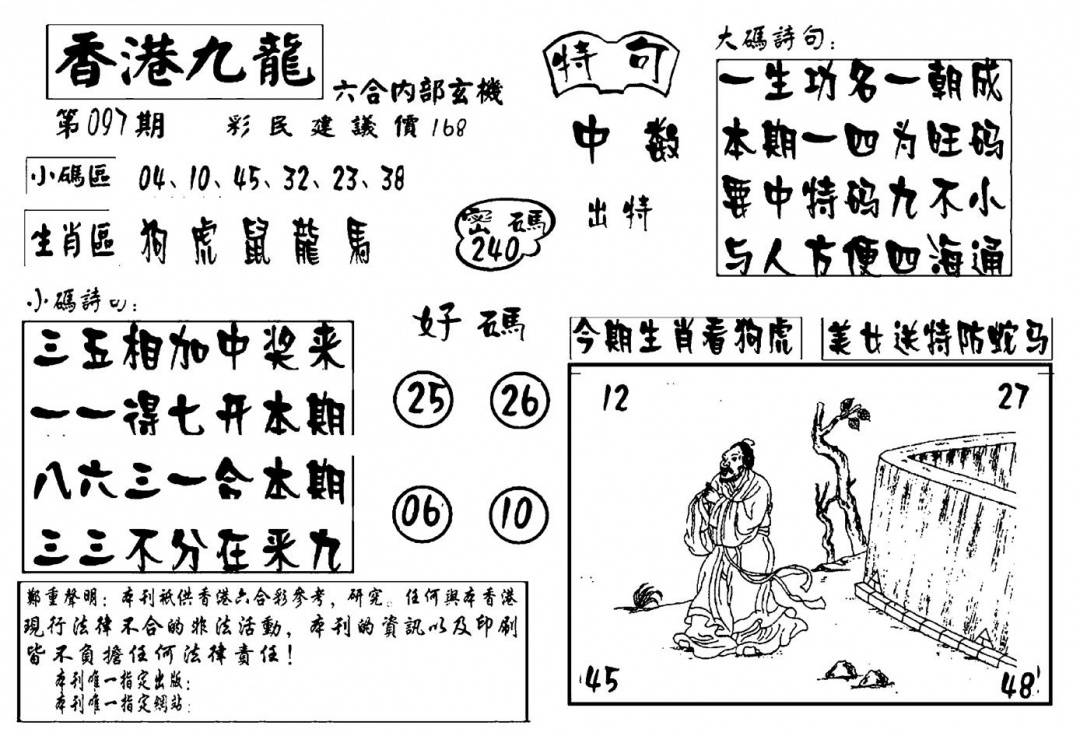 香港九龍
六合内部玄機
第097期 彩民建議價168
小碼區 04、10、45、32、23、38
生肖區 狗虎鼠龍馬
密碼
240
小碼詩句:
三五相加中奖来
一一得七开本期
八六三一合本期
三三不分在来九
好碼
25 26
06 10
特句
中数
出特
大碼詩句:
一生功名一朝成
本期一四为旺码
要中特码九不小
与人方便四海通
今期生肖看狗虎 美女送特防蛇马
12 27
45 48
鄭重聲明:本刊祇供香港六合彩參考,研究。任何與本香港
現行法律不合的非法活動,本刊的資訊以及印刷
皆不負擔任何法律責任!
本刊唯一指定出版:
本刊唯一指定網站: